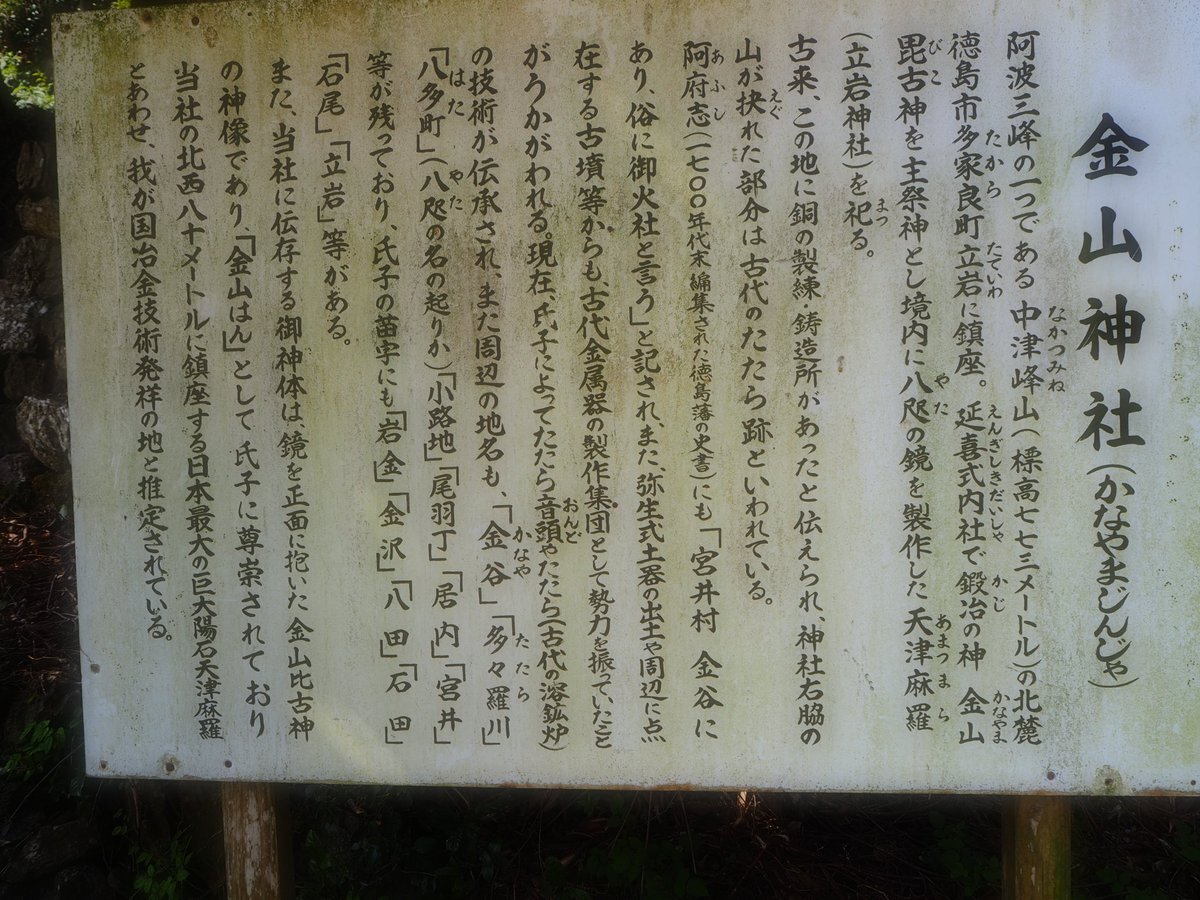 金山神社(かなやまじんじゃ)
阿波三峰の一つである 中津峰山(標高七七三メートル)の北麓
徳島市多家良町立岩に鎮座。延喜式内社で鍛冶の神 金山
毘古神を主祭神とし境内に八咫の鏡を製作した天津麻羅
(立岩神社)を祀る。
古来、この地に銅の製練・鋳造所があったと伝えられ、神社右脇の
山が抉れた部分は古代のたたら跡といわれている。
阿府志(一七〇〇年代末編集された徳島藩の史書)にも「宮井村 金谷に
あり、俗に御火社と言う」と記され、また、弥生式土器の出土や周辺に点
在する古墳等からも、古代金属器の製作集団として勢力を振っていたこと
がうかがわれる。現在、氏子によってたたら音頭やたたら(古代の溶鉱炉)
の技術が伝承され、また周辺の地名も、「金谷」「多々羅川」
「八多町」(八咫の名の起りか)「小路地」「尾羽丁」「居内」「宮井」
等が残っており、氏子の苗字にも「岩金」「金沢」「八田」「石田」
「石尾」「立岩」等がある。
また、当社に伝存する御神体は、鏡を正面に抱いた金山比古神
の神像であり、「金山はん」として氏子に尊崇されており
当社の北西八十メートルに鎮座する日本最大の巨大陽石天津麻羅
とあわせ、我が国冶金技術発祥の地と推定されている。
なかつみね
たから
たていわ
えんぎしきだいしゃ
かじ
かなやま
びこ
やた
あまつまら
まつ
えぐ
あふし
おんど
かなや
たたら
はた
やた